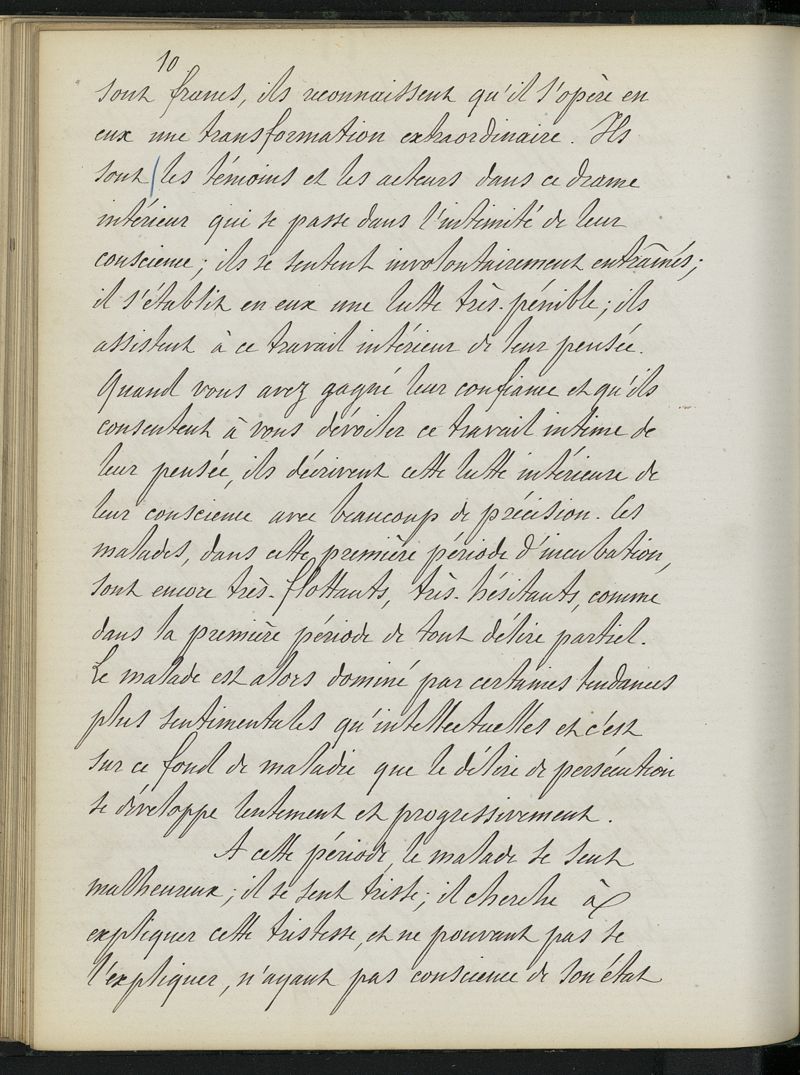 10
sont francs, ils reconnaissent qu'il s'opère en
eux une transformation extraordinaire. Ils
sont les témoins et les acteurs dans ce drame
intérieur qui se passe dans l'intimité de leur
conscience; ils se sentent involontairement entraînés;
il s'établit en eux une lutte très-pénible; ils
assistent à ce travail intérieur de leur pensée.
Quand vous avez gagné leur confiance et qu'ils
consentent à vous dévoiler ce travail intime de
leur pensée, ils décrivent cette lutte intérieure de
leur conscience avec beaucoup de précision. Ces
malades, dans cette première période d'incubation,
sont encore très-flottants, très-hésitants, comme
dans la première période de tout délire partiel.
Le malade est alors dominé par certaines tendances
plus sentimentales qu'intellectuelles et c'est
sur ce fond de maladie que le délire de persécution
se développe lentement et progressivement.
A cette période, le malade se sent
malheureux; il se sent triste; il cherche à
expliquer cette tristesse, et ne pouvant pas se
l'expliquer, n'ayant pas conscience de son état